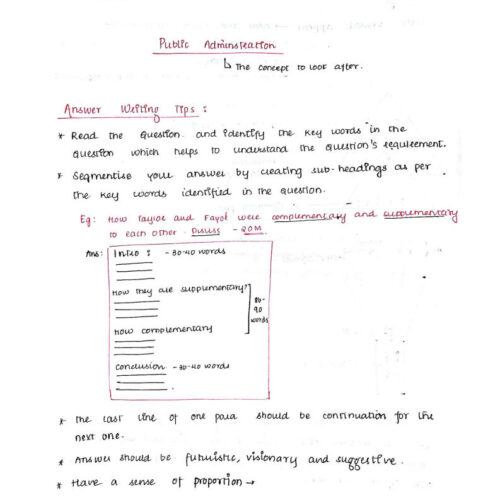 Public Administration
↳ The concept to look after.
Answer Writing Tips :
* Read the Question and identify the key words in the
question which helps to understand the question's requirement.
* Segmentise your answer by creating sub-headings as per
the key words identified in the question.
Eg: How Taylor and Fayol were complementary and supplementary
to each other. Discuss - 20M.
Ans: Intro : - 30-40 words
How they are supplementary?
80-
90
words
How complementary
conclusion - 30-40 words
* The last line of one para should be continuation for the
next one.
* Answer should be futuristic, visionary and suggestive.
* Have a sense of proportion →